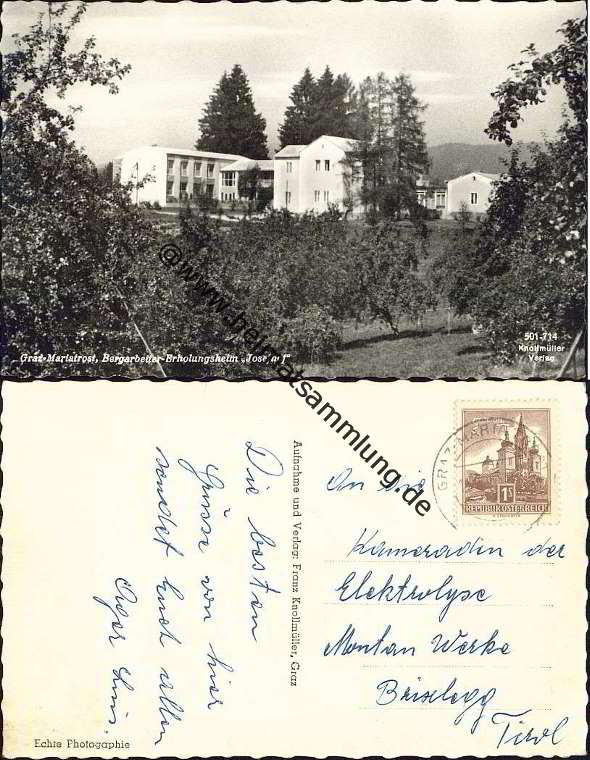 Graz-Mariatrost, Bergarbeiter-Erholungsheim „Josefhof"
501-714
Knollmüller
Verlag
@www.heimatsammlung.de
GRAZ-MARIAT
1S
REPUBLIK ÖSTERREICH
Aufnahme und Verlag: Franz Knollmüller, Graz
Die besten
Grüsse von hier
sendet Euch allen
An die
Kameraden der
Elektrolyse
Montan Werke
Brixlegg
Tirol
Echte Photographie